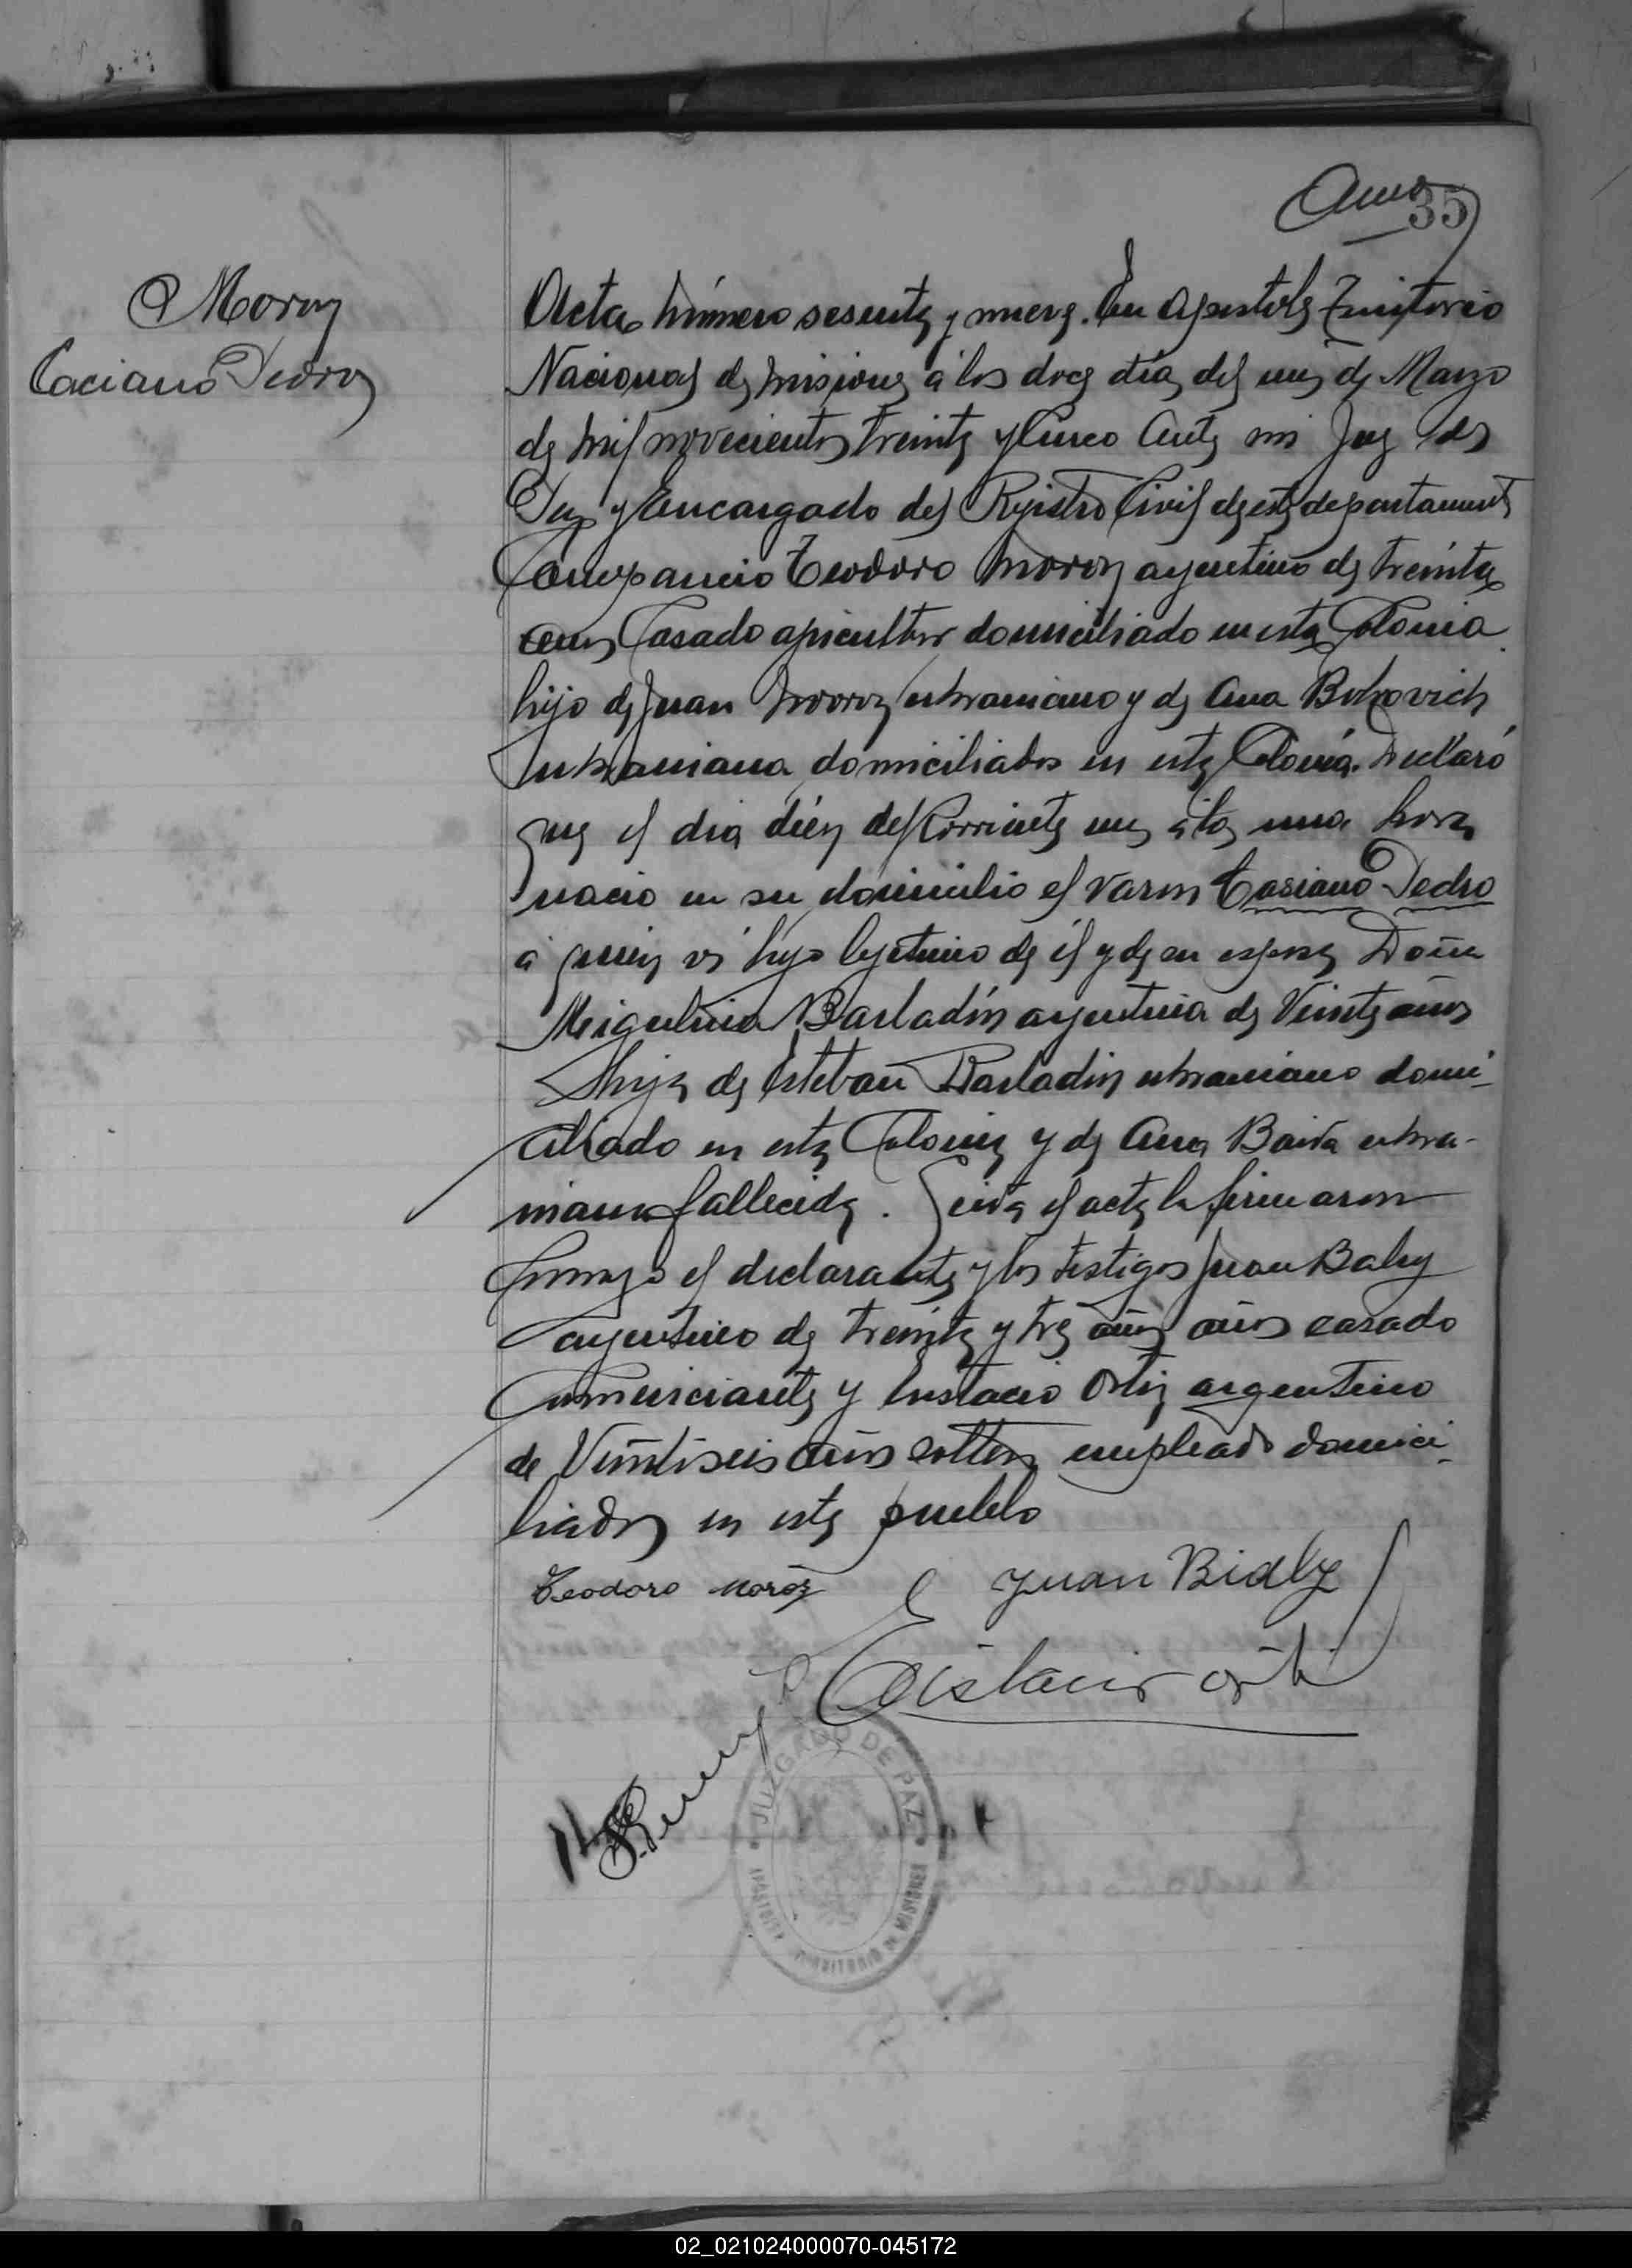 35
Moroz
Casiano Pedro
Acta número sesenta y nueve. En Apostoles Territorio
Nacional de Misiones a los doce días del mes de Marzo
de mil novecientos treinta y Cinco Ante mi Juez de
Paz y Encargado del Registro Civil de este departamento
Comparecio Teodoro Moroz argentino de treinta
años Casado apicultor domiciliado en esta Colonia
hijo de Juan Moroz ukraniano y de Ana Bukovich
ukraniana domiciliados en esta Colonia. Declaró
que el dia diéz del Corriente mes a las una hora
nacio en su domicilio el varon Casiano Pedro
a quien vi hijo legitimo de él y de su esposa Doña
Miguelina Barladín argentina de Veinte años
hija de Esteban Barladin ukraniano domi-
ciliado en esta Colonia y de Ana ukra-
niana fallecida. Leida el acta la firmaron
conmigo el declarante y los testigos Juan Baly
argentino de treinta y tres años años casado
Comerciante y Eustacio Ortiz argentino
de Veintiseis años soltero empleado domici-
liados en este pueblo
Teodoro Moróz Juan Bialy
Eustacio Orti
JUZGADO DE PAZ
APOSTOLES TERRITORIO DE MISIONES
02_021024000070-045172